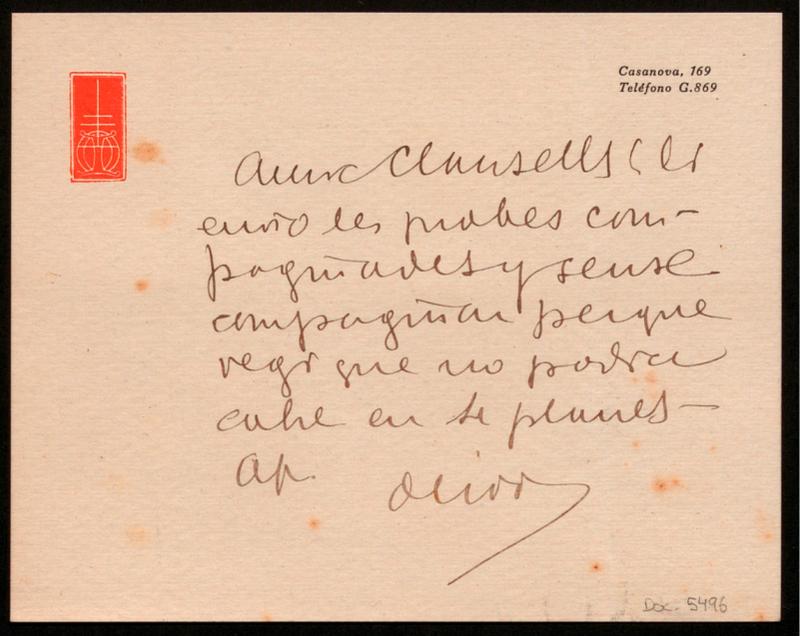 Casanova, 169
Teléfono G.869
Amic Clausells: li
envio les probes com-
paginades y sense
compaginar perque
vegi que no podria
cabre en 4 planes-
Af.
Doc. 5496